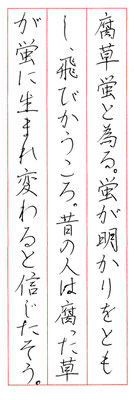 腐草蛍と為る。蛍が明かりをとも
し、飛びかうころ。昔の人は腐った草
が蛍に生まれ変わると信じたそう。